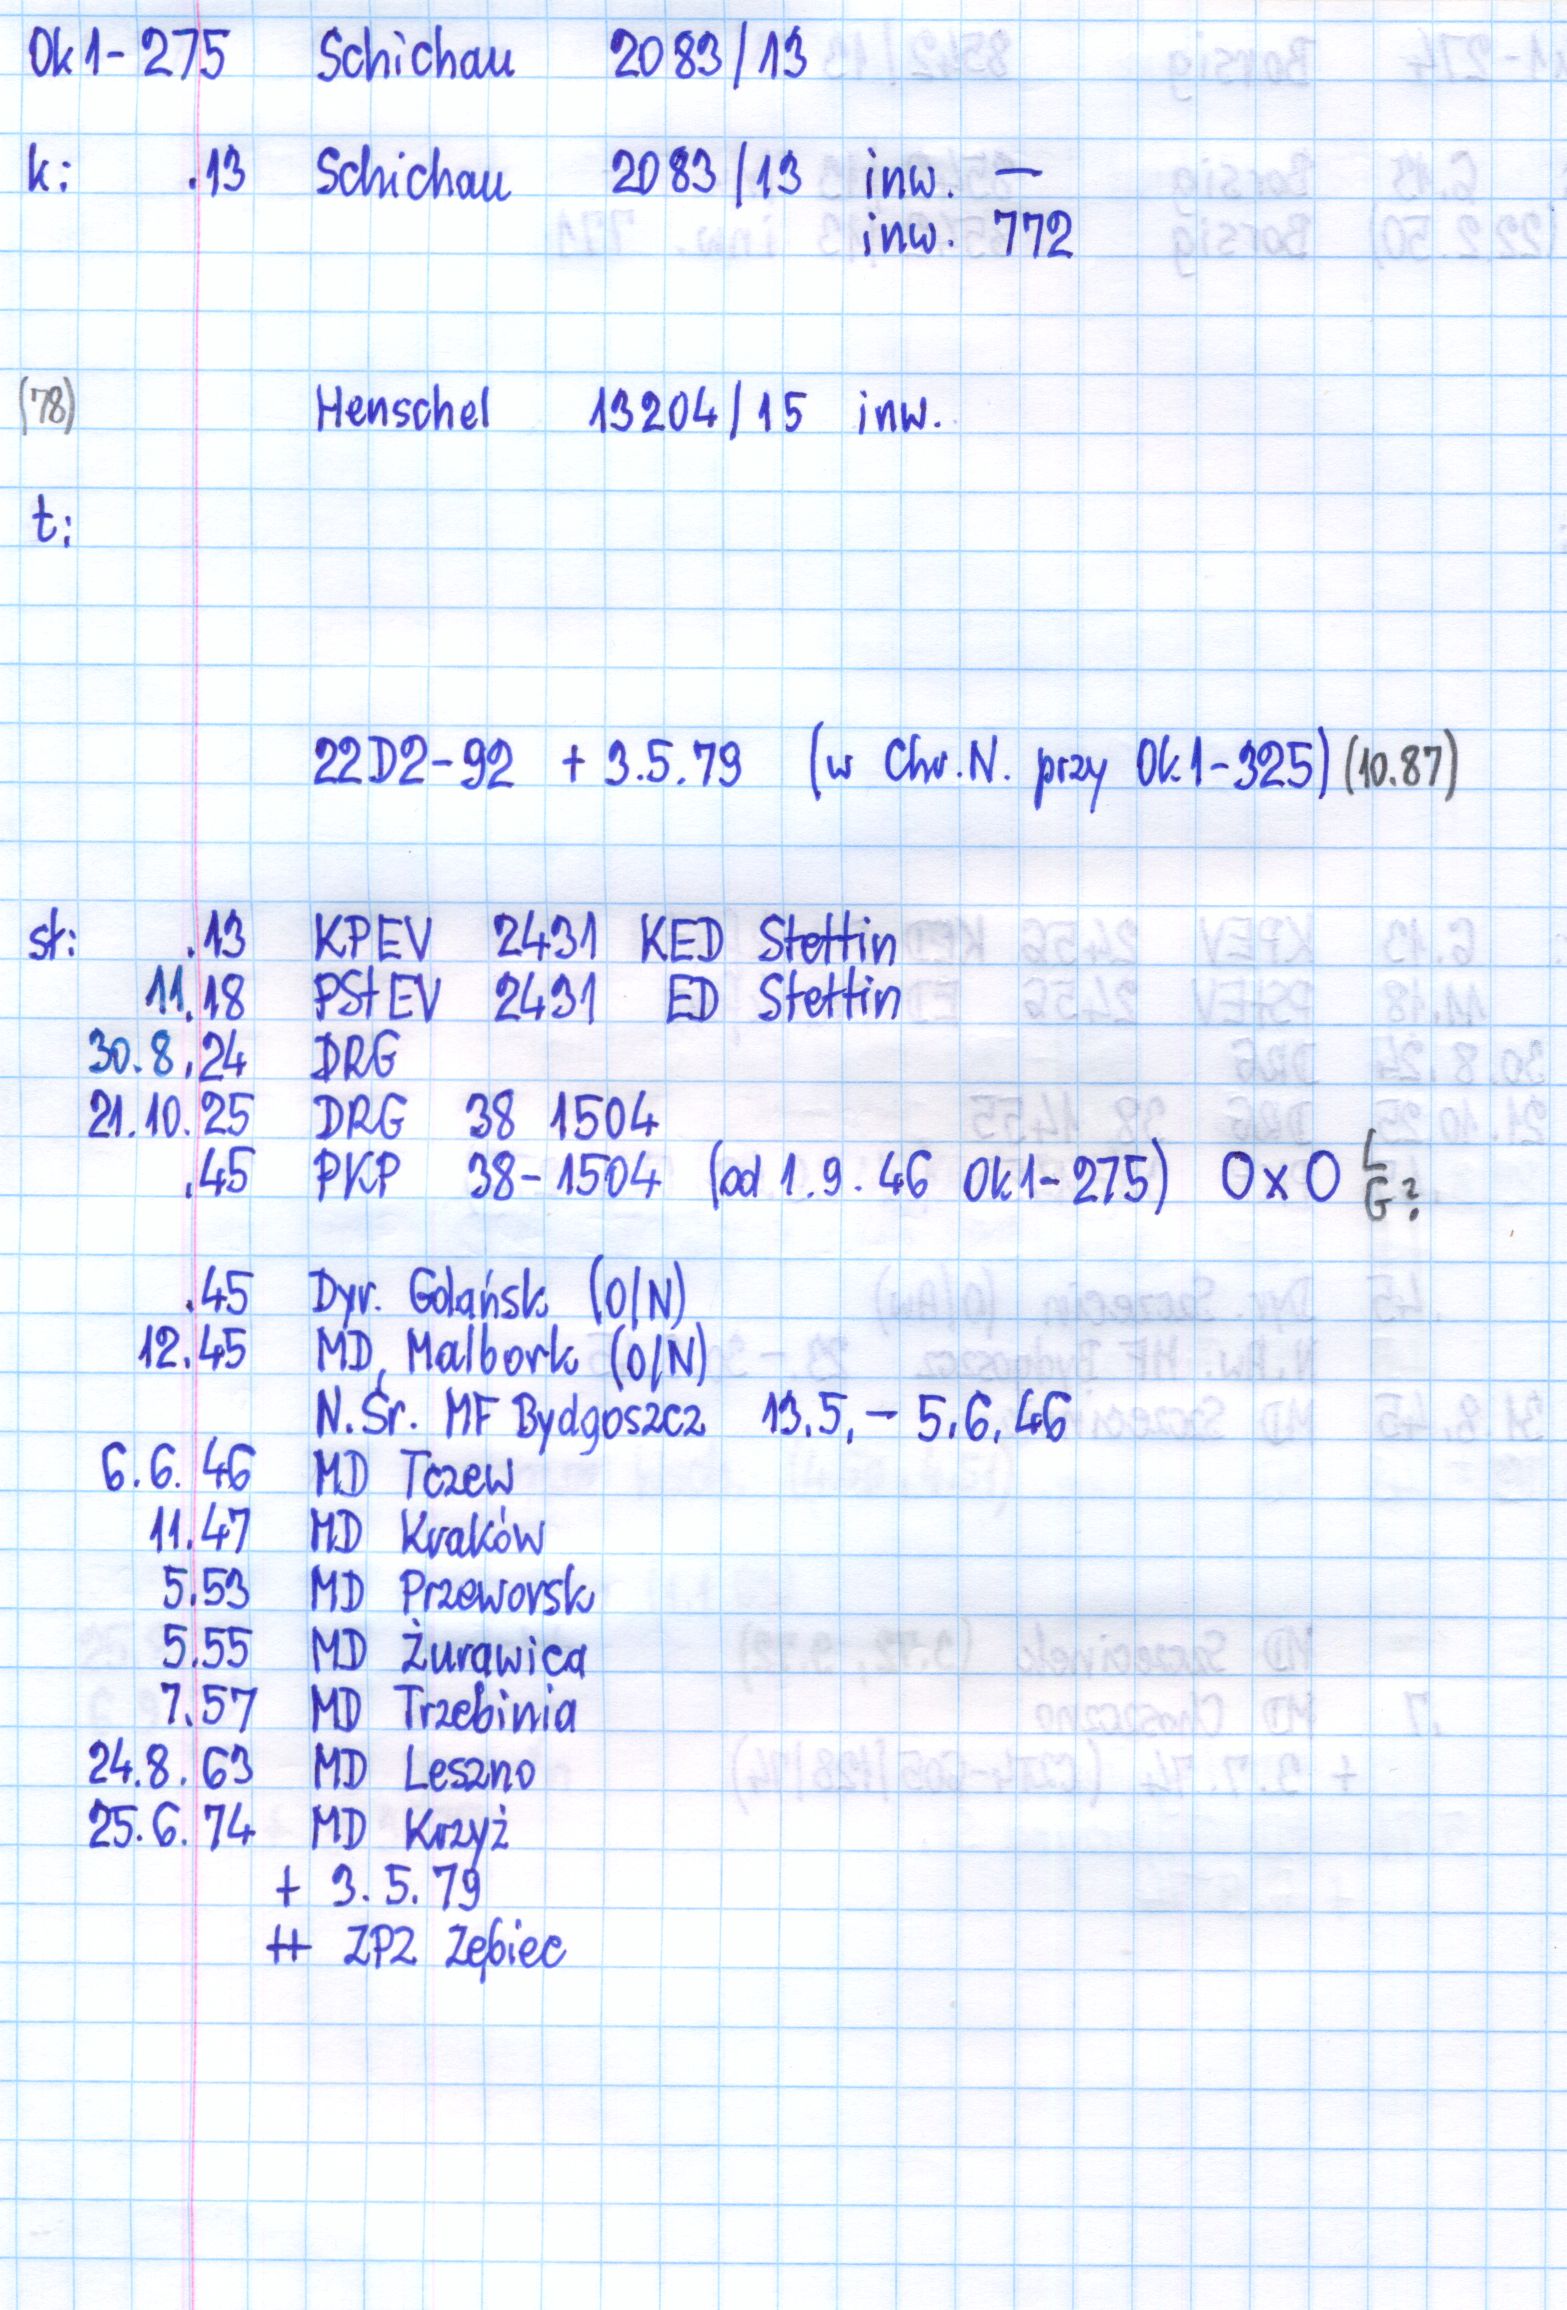 Ok1-275 Schichau 2083/13
k: .13 Schichau 2083/13 inw. —
inw. 772
(78) Henschel 13204/15 inw.
t:
22D2-92 + 3.5.79 (w Chr.N. przy Ok1-325) (10.87)
st: .13 KPEV 2431 KED Stettin
11.18 PStEV 2431 ED Stettin
30.8.24 DRG
21.10.25 DRG 38 1504
.45 PKP 38-1504 (od 1.9.46 Ok1-275) O x O L/G?
.45 Dyr. Gdańsk (O/N)
12.45 MD Malbork (O/N)
N.Śr. MF Bydgoszcz 13.5.- 5.6.46
6.6.46 MD Tczew
11.47 MD Kraków
5.53 MD Przeworsk
5.55 MD Żurawica
7.57 MD Trzebinia
24.8.63 MD Leszno
25.6.74 MD Krzyż
+ 3.5.79
++ ZPZ Zębiec